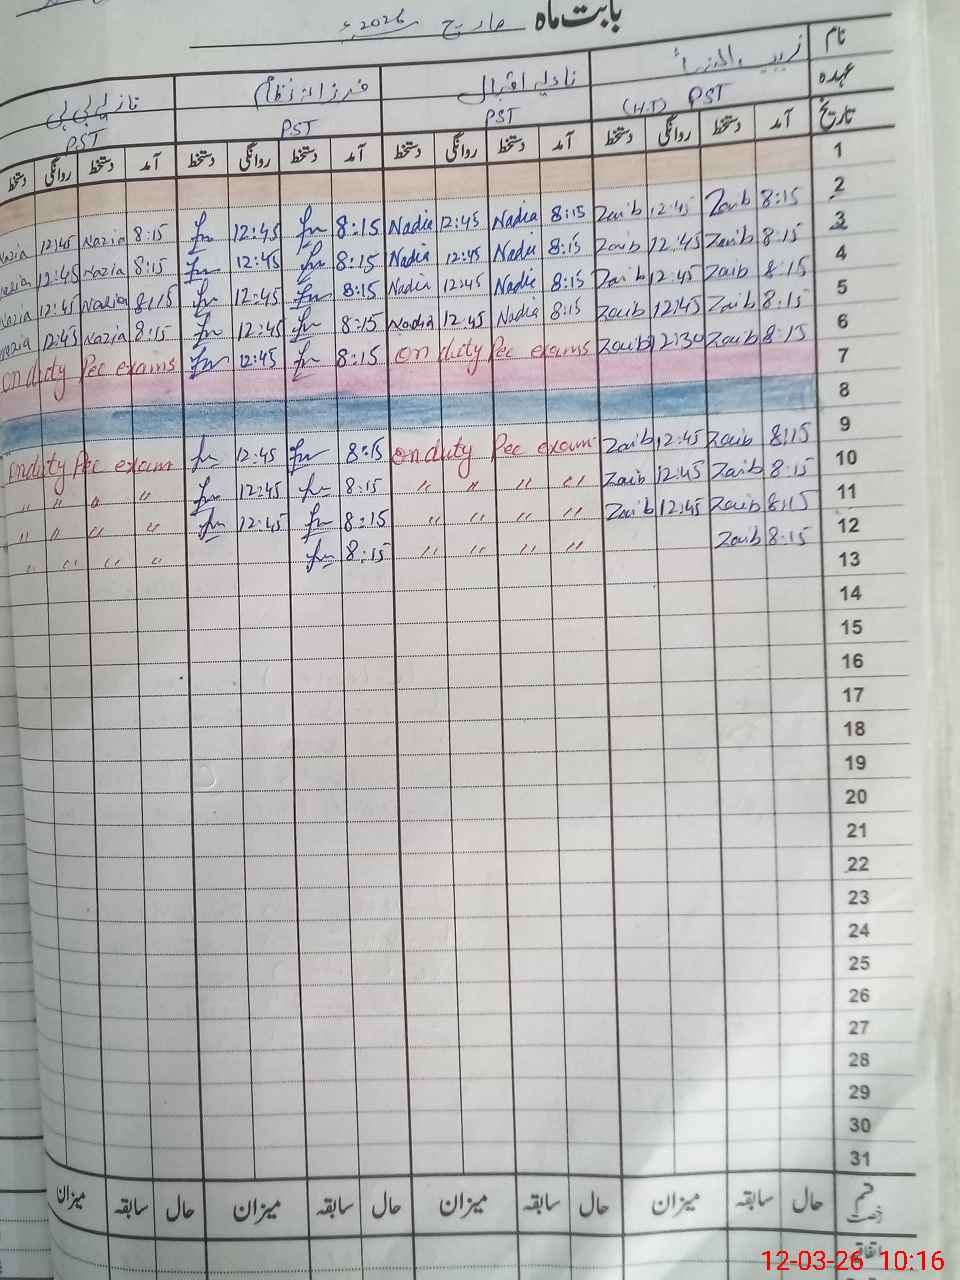 بابت ماہ مارچ 2026ء
نام زیب النساء نادیہ اقبال فرزانہ نظام نازلی بی بی
عہدہ PST (H.T) PST PST PST
تاریخ آمد دستخط روانگی دستخط آمد دستخط روانگی دستخط آمد دستخط روانگی دستخط آمد دستخط روانگی دستخط
1
2 8:15 Zaib 12:45 Zaib 8:15 Nadia 12:45 Nadia 8:15 12:45 8:15 Nazia 12:45 Nazia
3 8:15 Zaib 12:45 Zaib 8:15 Nadia 12:45 Nadia 8:15 12:45 8:15 Nazia 12:45 Nazia
4 8:15 Zaib 12:45 Zaib 8:15 Nadia 12:45 Nadia 8:15 12:45 8:15 Nazia 12:45 Nazia
5 8:15 Zaib 12:45 Zaib 8:15 Nadia 12:45 Nadia 8:15 12:45 8:15 Nazia 12:45 Nazia
6 8:15 Zaib 12:30 Zaib on duty Pec exams 8:15 12:45 on duty Pec exams
7
8
9 8:15 Zaib 12:45 Zaib on duty Pec exam 8:15 12:45 on duty Pec exam
10 8:15 Zaib 12:45 Zaib " " " " 8:15 12:45 " " " "
11 8:15 Zaib 12:45 Zaib " " " " 8:15 12:45 " " " "
12 8:15 Zaib " " " " 8:15 " " " "
13
14
15
16
17
18
19
20
21
22
23
24
25
26
27
28
29
30
31
قسم رخصت حال سابقہ میزان حال سابقہ میزان حال سابقہ میزان حال سابقہ میزان
12-03-26 10:16